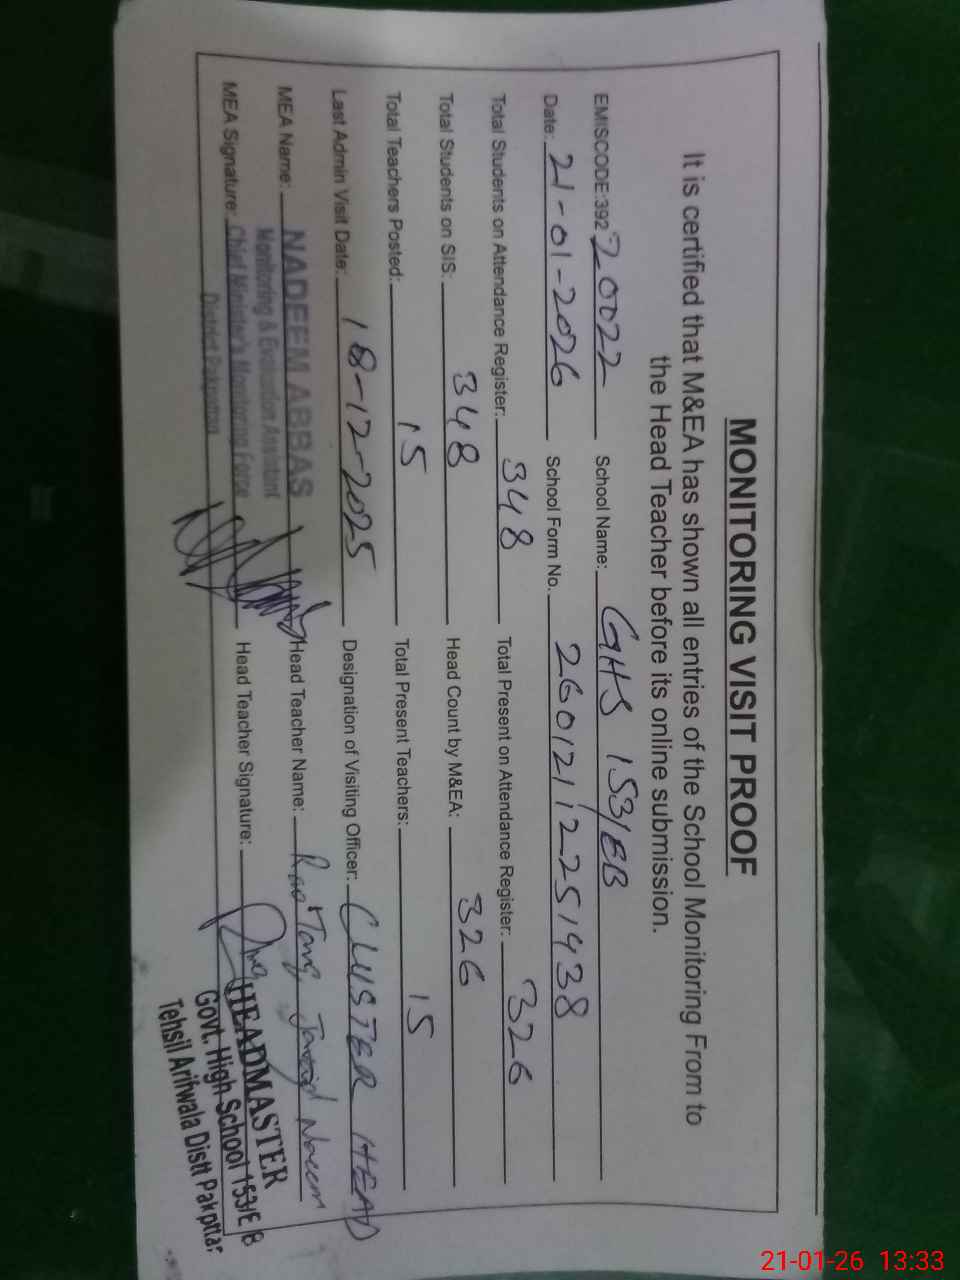 MONITORING VISIT PROOF
It is certified that M&EA has shown all entries of the School Monitoring From to
the Head Teacher before its online submission.
EMISCODE:392 20022 School Name: GHS 153/EB
Date: 21-01-2026 School Form No. 26012112251438
Total Students on Attendance Register: 348 Total Present on Attendance Register: 326
Total Students on SIS: 348 Head Count by M&EA: 326
Total Teachers Posted: 15 Total Present Teachers: 15
Last Admin Visit Date: 18-12-2025 Designation of Visiting Officer: CLUSTER HEAD
MEA Name: NADEEM ABBAS Head Teacher Name: Rao Naeem
Monitoring & Evaluation Assistant
MEA Signature: Chief Minister's Monitoring Force Head Teacher Signature:
District Pakpattan
HEADMASTER
Govt. High School 153/E B
Tehsil Arifwala Distt Pakpttan
21-01-26 13:33